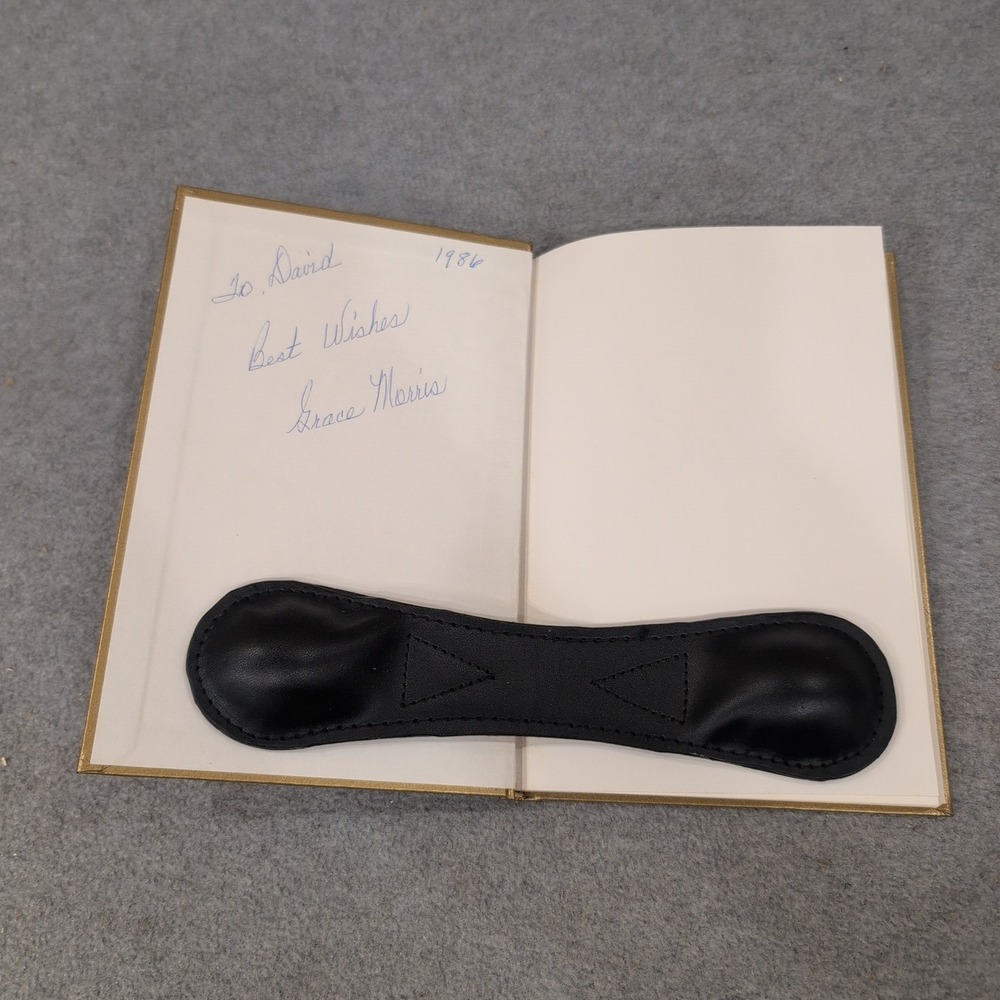 To. David 1986
Best Wishes
Grace Morris